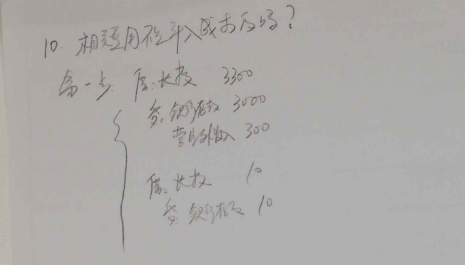 10. 相关费用在计入成本后吗?
第一步 借:长投 3300
贷:银行存款 3000
营业外收入 300
借:长投 10
贷:银行存款 10